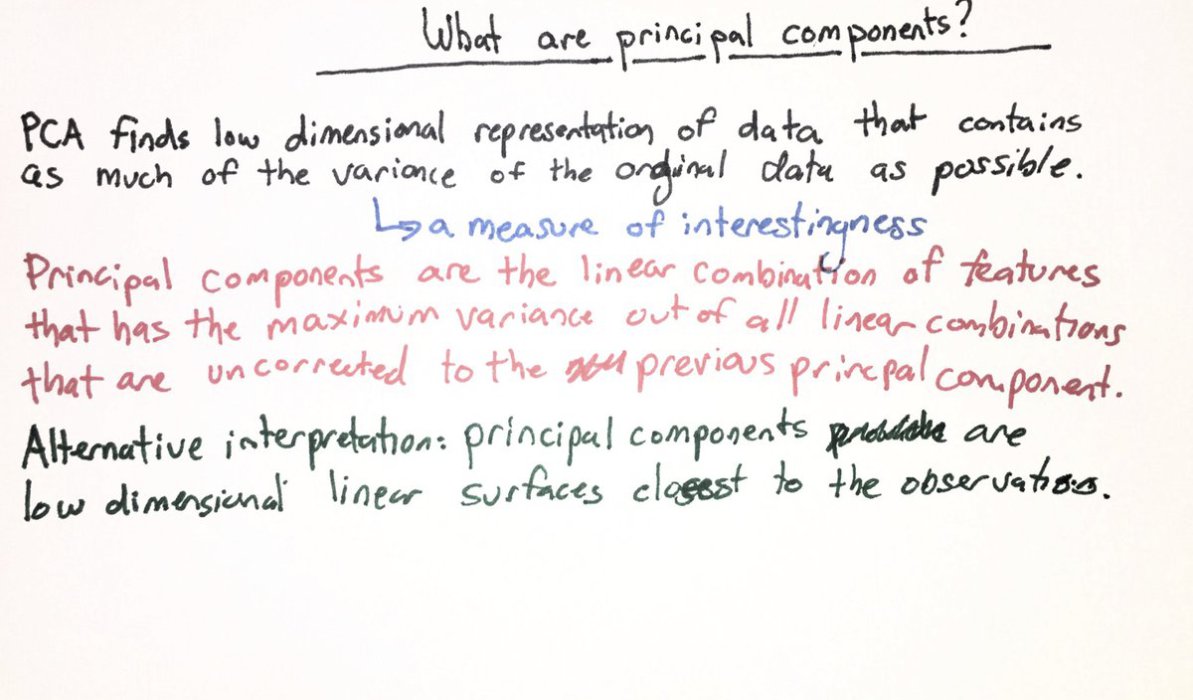 What are principal components?
PCA finds low dimensional representation of data that contains
as much of the variance of the orginal data as possible.
↳ a measure of interestingness
Principal components are the linear combination of features
that has the maximum variance out of all linear combinations
that are uncorrected to the previous princpal component.
Alternative interpretation: principal components are
low dimensional linear surfaces closest to the observations.